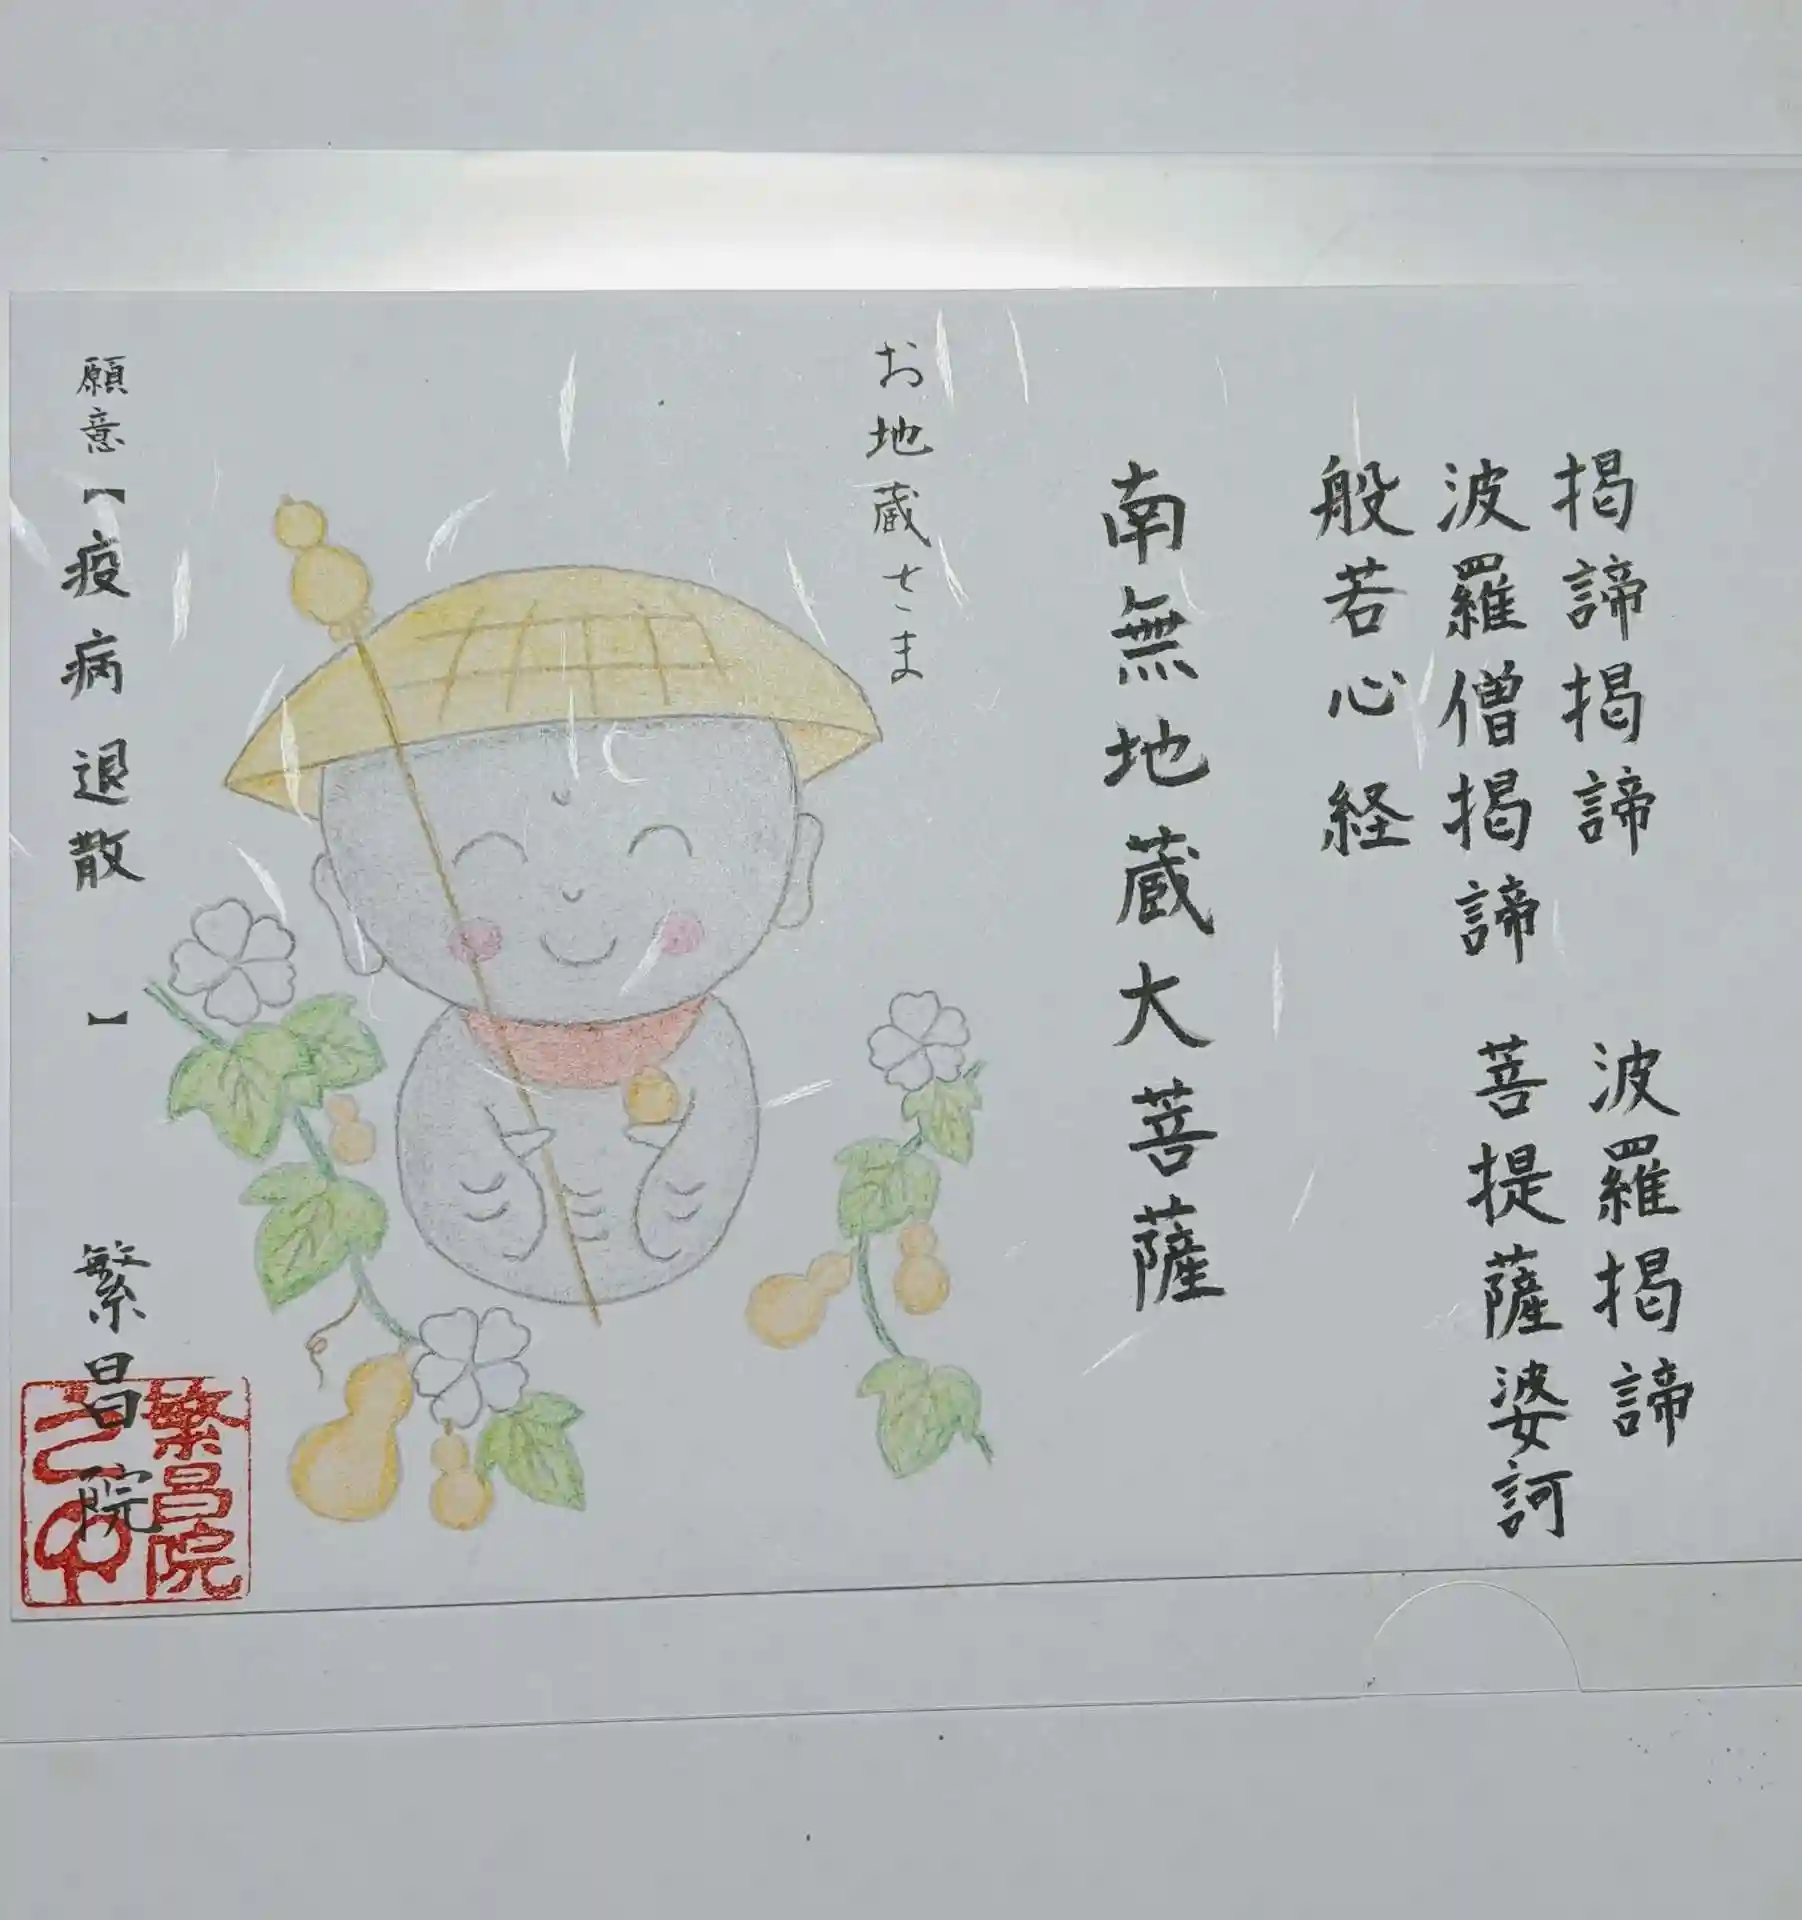 揭諦揭諦 波羅揭諦
波羅僧揭諦 菩提薩婆訶
般若心経
南無地蔵大菩薩
お地蔵さま
願意【疫病退散】
繁昌院
繁昌院